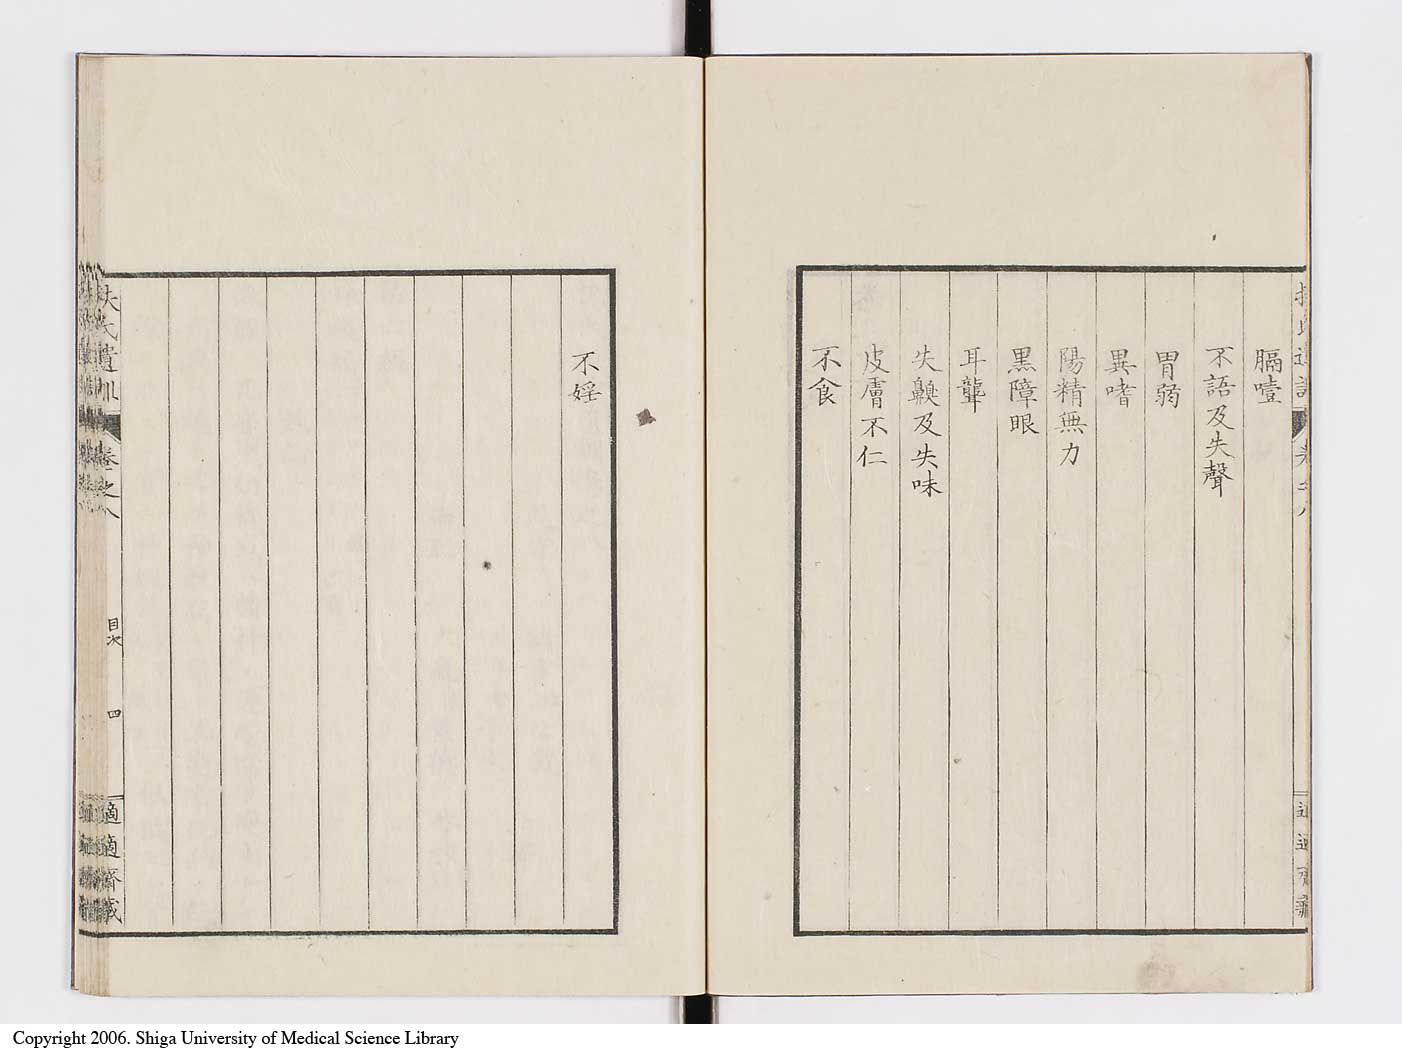 膈噎
不語及失聲
胃弱
異嗜
陽精無力
黒障眼
耳聾
失齅及失味
皮膚不仁
不食
不婬
扶氏遺訓
卷之八
目次
四
適適齋藏
Copyright 2006. Shiga University of Medical Science Library